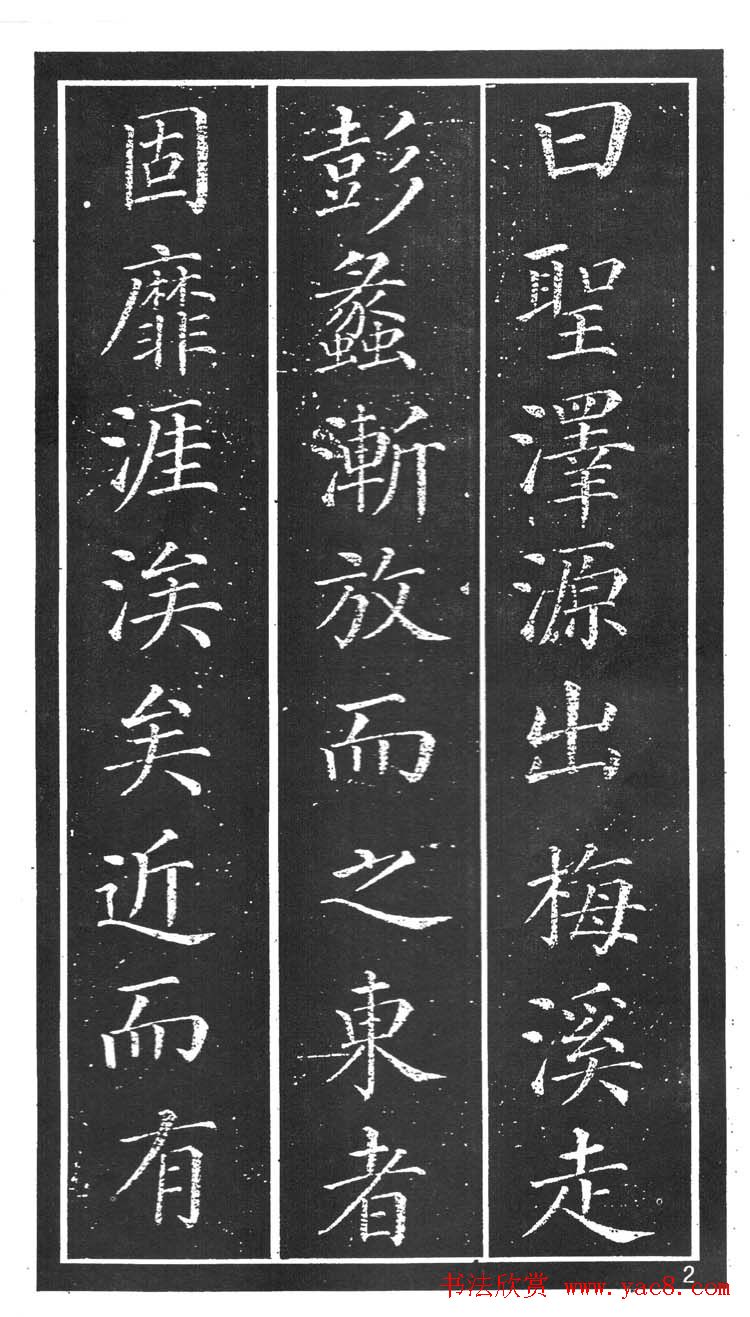 曰聖澤源出梅溪走
彭蠡漸放而之東者
固靡涯涘矣近而有
2
书法欣赏 www.yac8.com